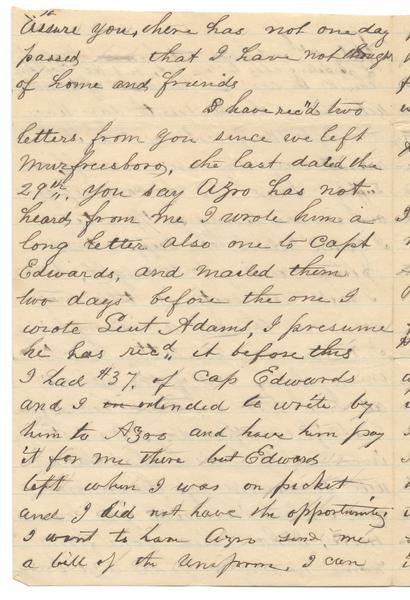 assure you, there has not one day
passed that I have not though
of home and friends
I have rec'd two
letters from you since we left
Murfreesboro, the last dated the
29th, you say Azro has not
heard from me, I wrote him a
long letter also one to Capt
Edwards, and mailed them
two days before the one I
wrote Leut Adams, I presume
he has recd, it before this
I had $37, of Cap Edwards
and I intended to write by
him to Azro and have him pay
it for me there but Edwards
left when I was on picket
and I did not have the opportunity.
I want to have Azro send me
a bill of the uniform, I can